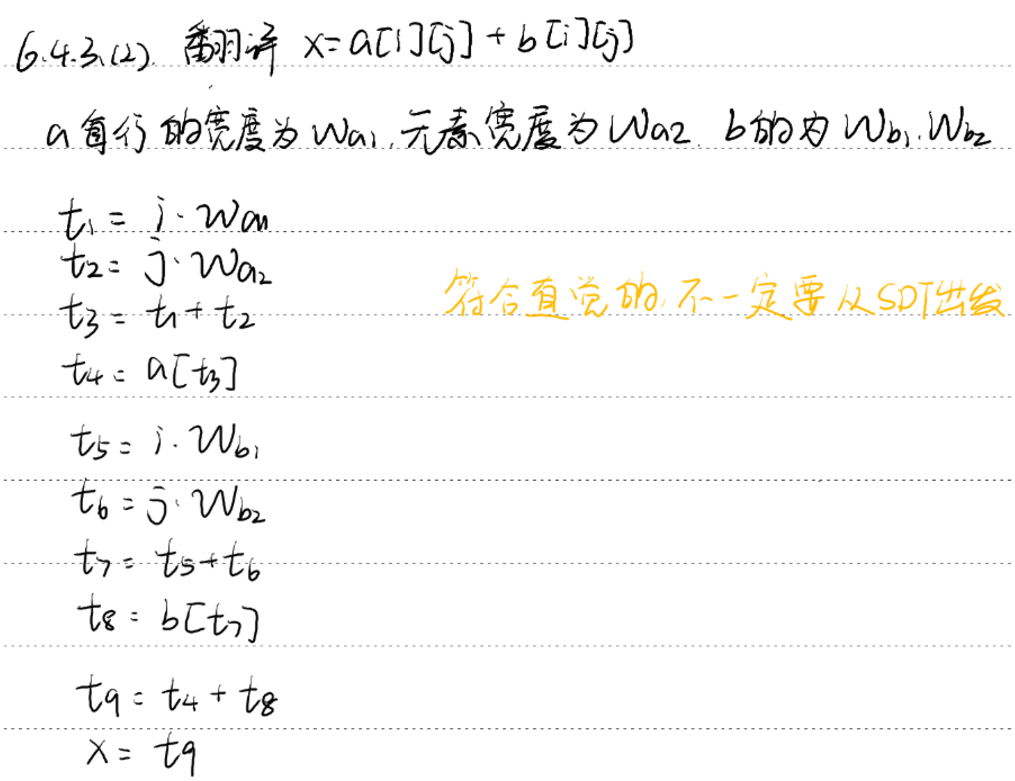 6.4.3.(2). 翻译 x=a[i][j]+b[i][j]
a每行的宽度为Wa1,元素宽度为Wa2. b的为Wb1.Wb2
t1 = i·Wa1
t2 = j·Wa2
符合直觉的,不一定要从SDT出发
t3 = t1+t2
t4 = a[t3]
t5 = i·Wb1
t6 = j·Wb2
t7 = t5+t6
t8 = b[t7]
t9 = t4+t8
x = t9